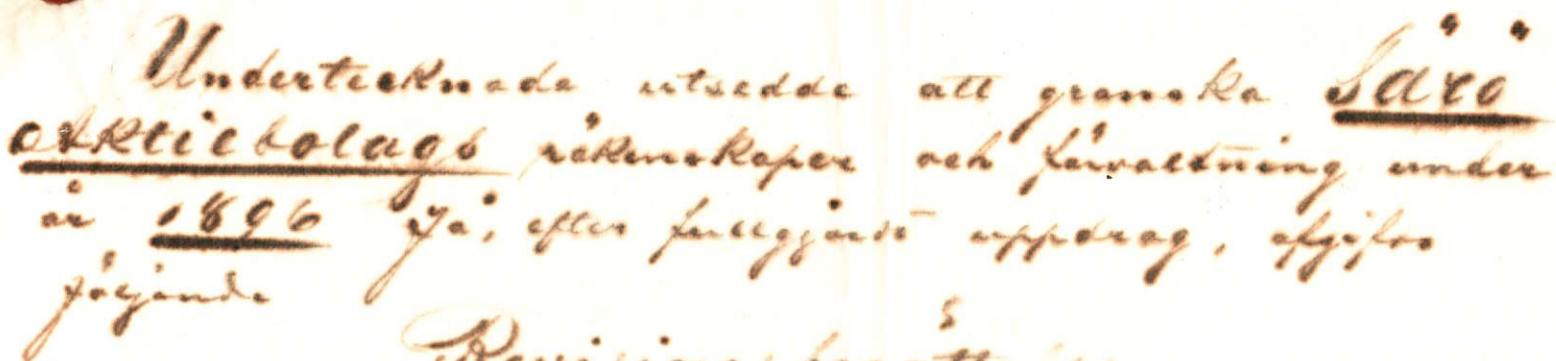 Undertecknade utsedde att granska Särö
Aktiebolags räkenskaper och förvaltning under
år 1896 få, efter fullgjordt uppdrag, afgifva
följande